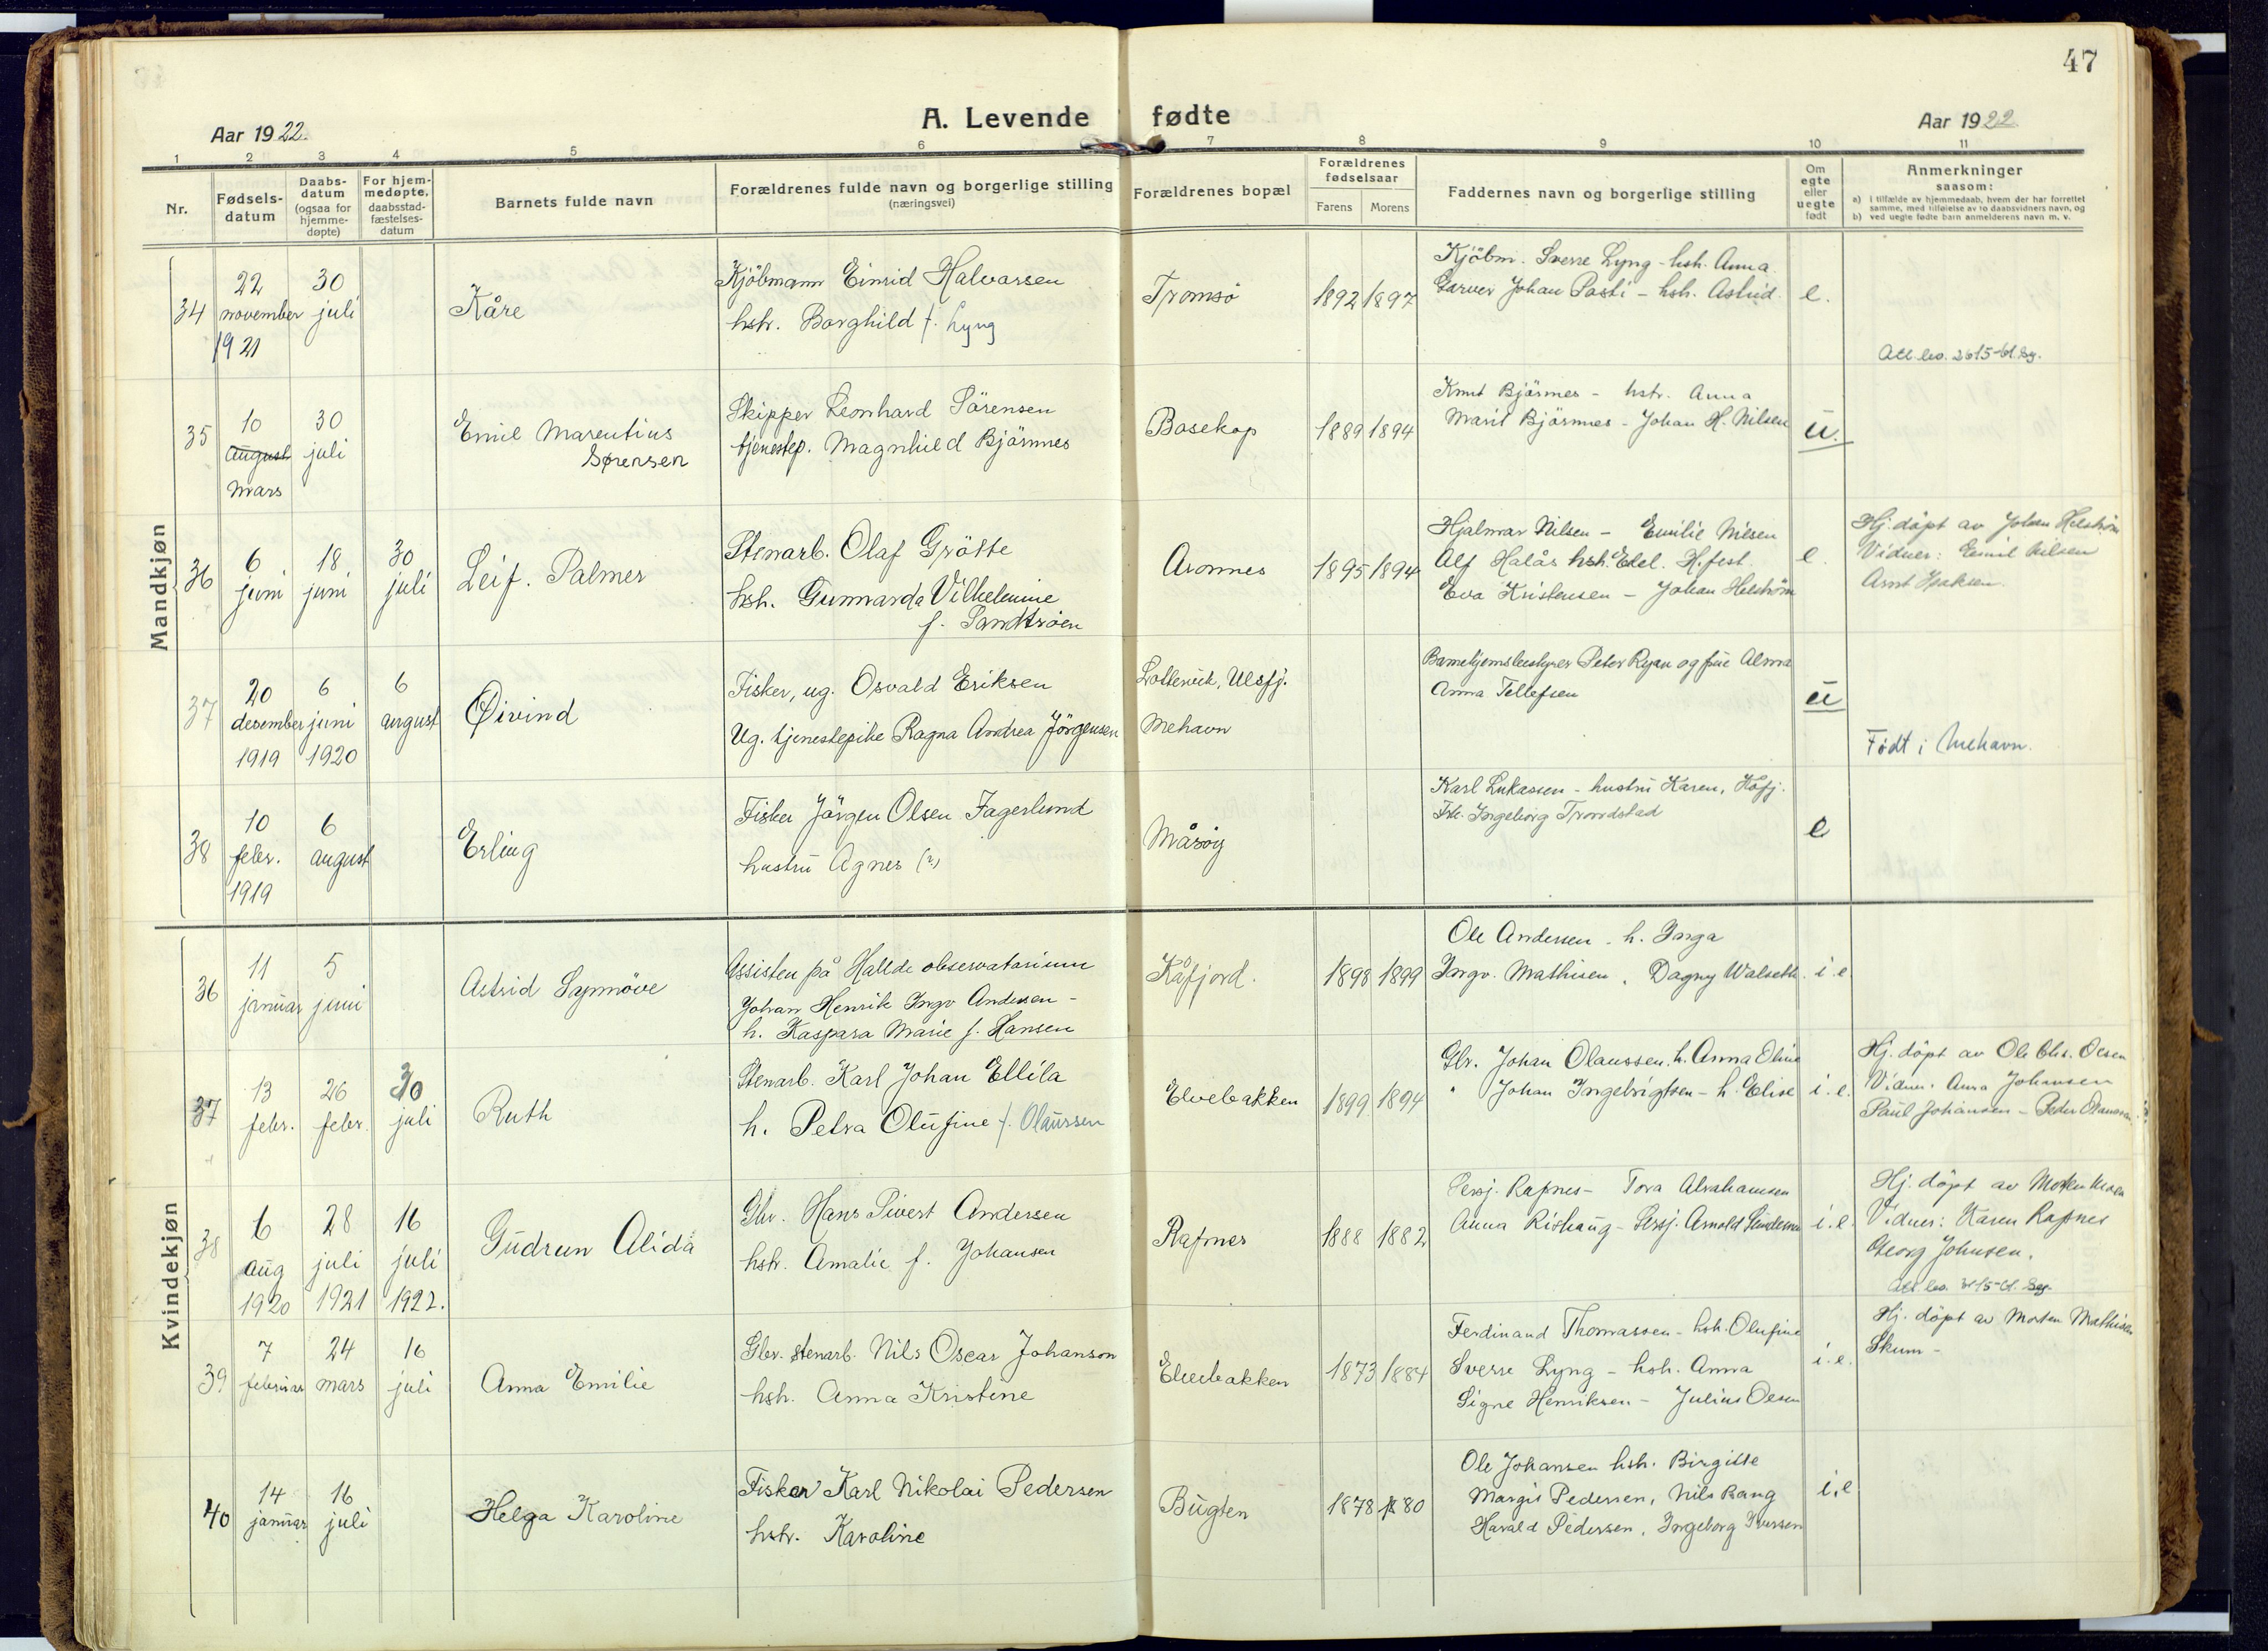 47
A. Levende fødte
Aar 1922.
Aar 1922
1 2 3 4 5 6 7 8 9 10 11
Nr.
Fødsels-
datum
Daabs-
datum
(ogsaa for
hjemme-
døpte)
For hjem-
medøpte,
daabsstad-
fæstelses-
datum
Barnets fulde navn
Forældrenes fulde navn og borgerlige stilling
(næringsvei)
Forældrenes bopæl
Forældrenes
fødselsaar
Farens Morens
Faddernes navn og borgerlige stilling
Om
egte
eller
uegte
født
Anmerkninger
saasom:
a) i tilfælde av hjemmedaab, hvem der har forrettet
samme, med tilføielse av to daabsvidners navn, og
b) ved uegte fødte barn anmelderens navn m. v.
Mandkjøn
34
22
november
1921
30
juli
Kåre
Kjöbmann Halvorsen
hstr. Borghild f. Lyng
Tromsö
1892 1897
Kjöbm. Sverre Lyng - hsh. Anna
Garver Johan Posti - hsh. Astrid
e.
Att. lev. 26 15-61. Sg.
35
10
august
mars
30
juli
Emil Marentius
Sørensen
Skipper Leonhard Sörensen
tjenestep. Magnhild Björnnes
Bosekop
1889 1894
Knut Björnnes - hstr. Anna
Marit Björnnes - Johan H. Nilsen
u.
36
6
juni
18
juni
30
juli
Leif. Palmer
Stenarb. Olaf Grötte
hsh. Gunnarda Vilhelmine
f. Sandtröen
Aronnes
1895 1894
Hjalmar Nilsen - Emilie Nilsen
Alf Halås hsh. Edel. H.fest.
Eva Kristensen - Johan Helström
e.
Hj. döpt av Johan Helström
Vidner: Emil Nilsen
Arnt Isaksen.
37
20
desember
1919
6
juni
1920
6
august
Øivind
Fisker, ug. Osvald Eriksen
Ug. tjenestepike Ragna Andrea Jörgensen
Ulsfj.
Mehavn
Barnehjemsbestyrer Peter Ryan og frue Alma
Anna Tellefsen
u
Født i Mehavn.
38
10
febr.
1919
6
august
Erling
Fisker Jörgen Olsen Fagerlund
hustru Agnes (?)
Måsöy
Karl Lukassen - hustru Karen, Kåfj.
Frk. Ingeborg Trondstad
e
Kvindekjøn
36
11
januar
5
juni
Astrid Synnöve
Assisten på Hallde observatorium
Johan Henrik Ingv Andersen -
h. Kaspara Marie f. Hansen
Kåfjord.
1898 1899
Ole Andersen - h. Inga
Ingv. Mathisen, Dagny Walseth.
i e
37
13
febr.
26
febr.
30
juli
Ruth
Stenarb. Karl Johan Ellila
h. Petra Olufine f. Olaussen
Elvebakken
1899 1894
Gbr. Johan Olaussen. h. Anna Oline
" Johan Ingebrigtsen - h. Elise
i. e.
Hj. döpt av Ole Chr. Olsen
Vidner. Anna Johansen
Paul Johansen - Peder Olaussen
38
6
aug
1920
28
juli
1921
16
juli
1922.
Gudrun Alida
Gbr. Hans Sivert Andersen
hstr. Amalie f. Johansen
Rafnes
1888 1882
Sersj. Rafnes - Tora Abrahamsen
Anna Rishaug - Sersj. Arnold
i. e.
Hj. döpt av Morten
Vidner: Karen Rafnes
Georg Johnsen.
Att. lev. 3/1 15-61. Sg.
39
7
februar
24
mars
16
juli
Anna Emilie
Gbr. stenarb. Nils Oscar Johanson
hsh. Anna Kristine
Elvebakken
1873 1884
Ferdinand Thomassen - hsh. Olufine
Sverre Lyng - hsh. Anna
Signe Henriksen - Julius Olsen
i. e.
Hj. döpt av Morten Mathisen
Skum -
40
14
januar
16
juli
Helga Karoline
Fisker Karl Nikolai Pedersen
hstr. Karoline
Bugten
1878 1880
Ole Johansen hsh. Birgitte
Margit Pedersen, Nils Bang
Harald Pedersen, Ingeborg Iversen
i. e